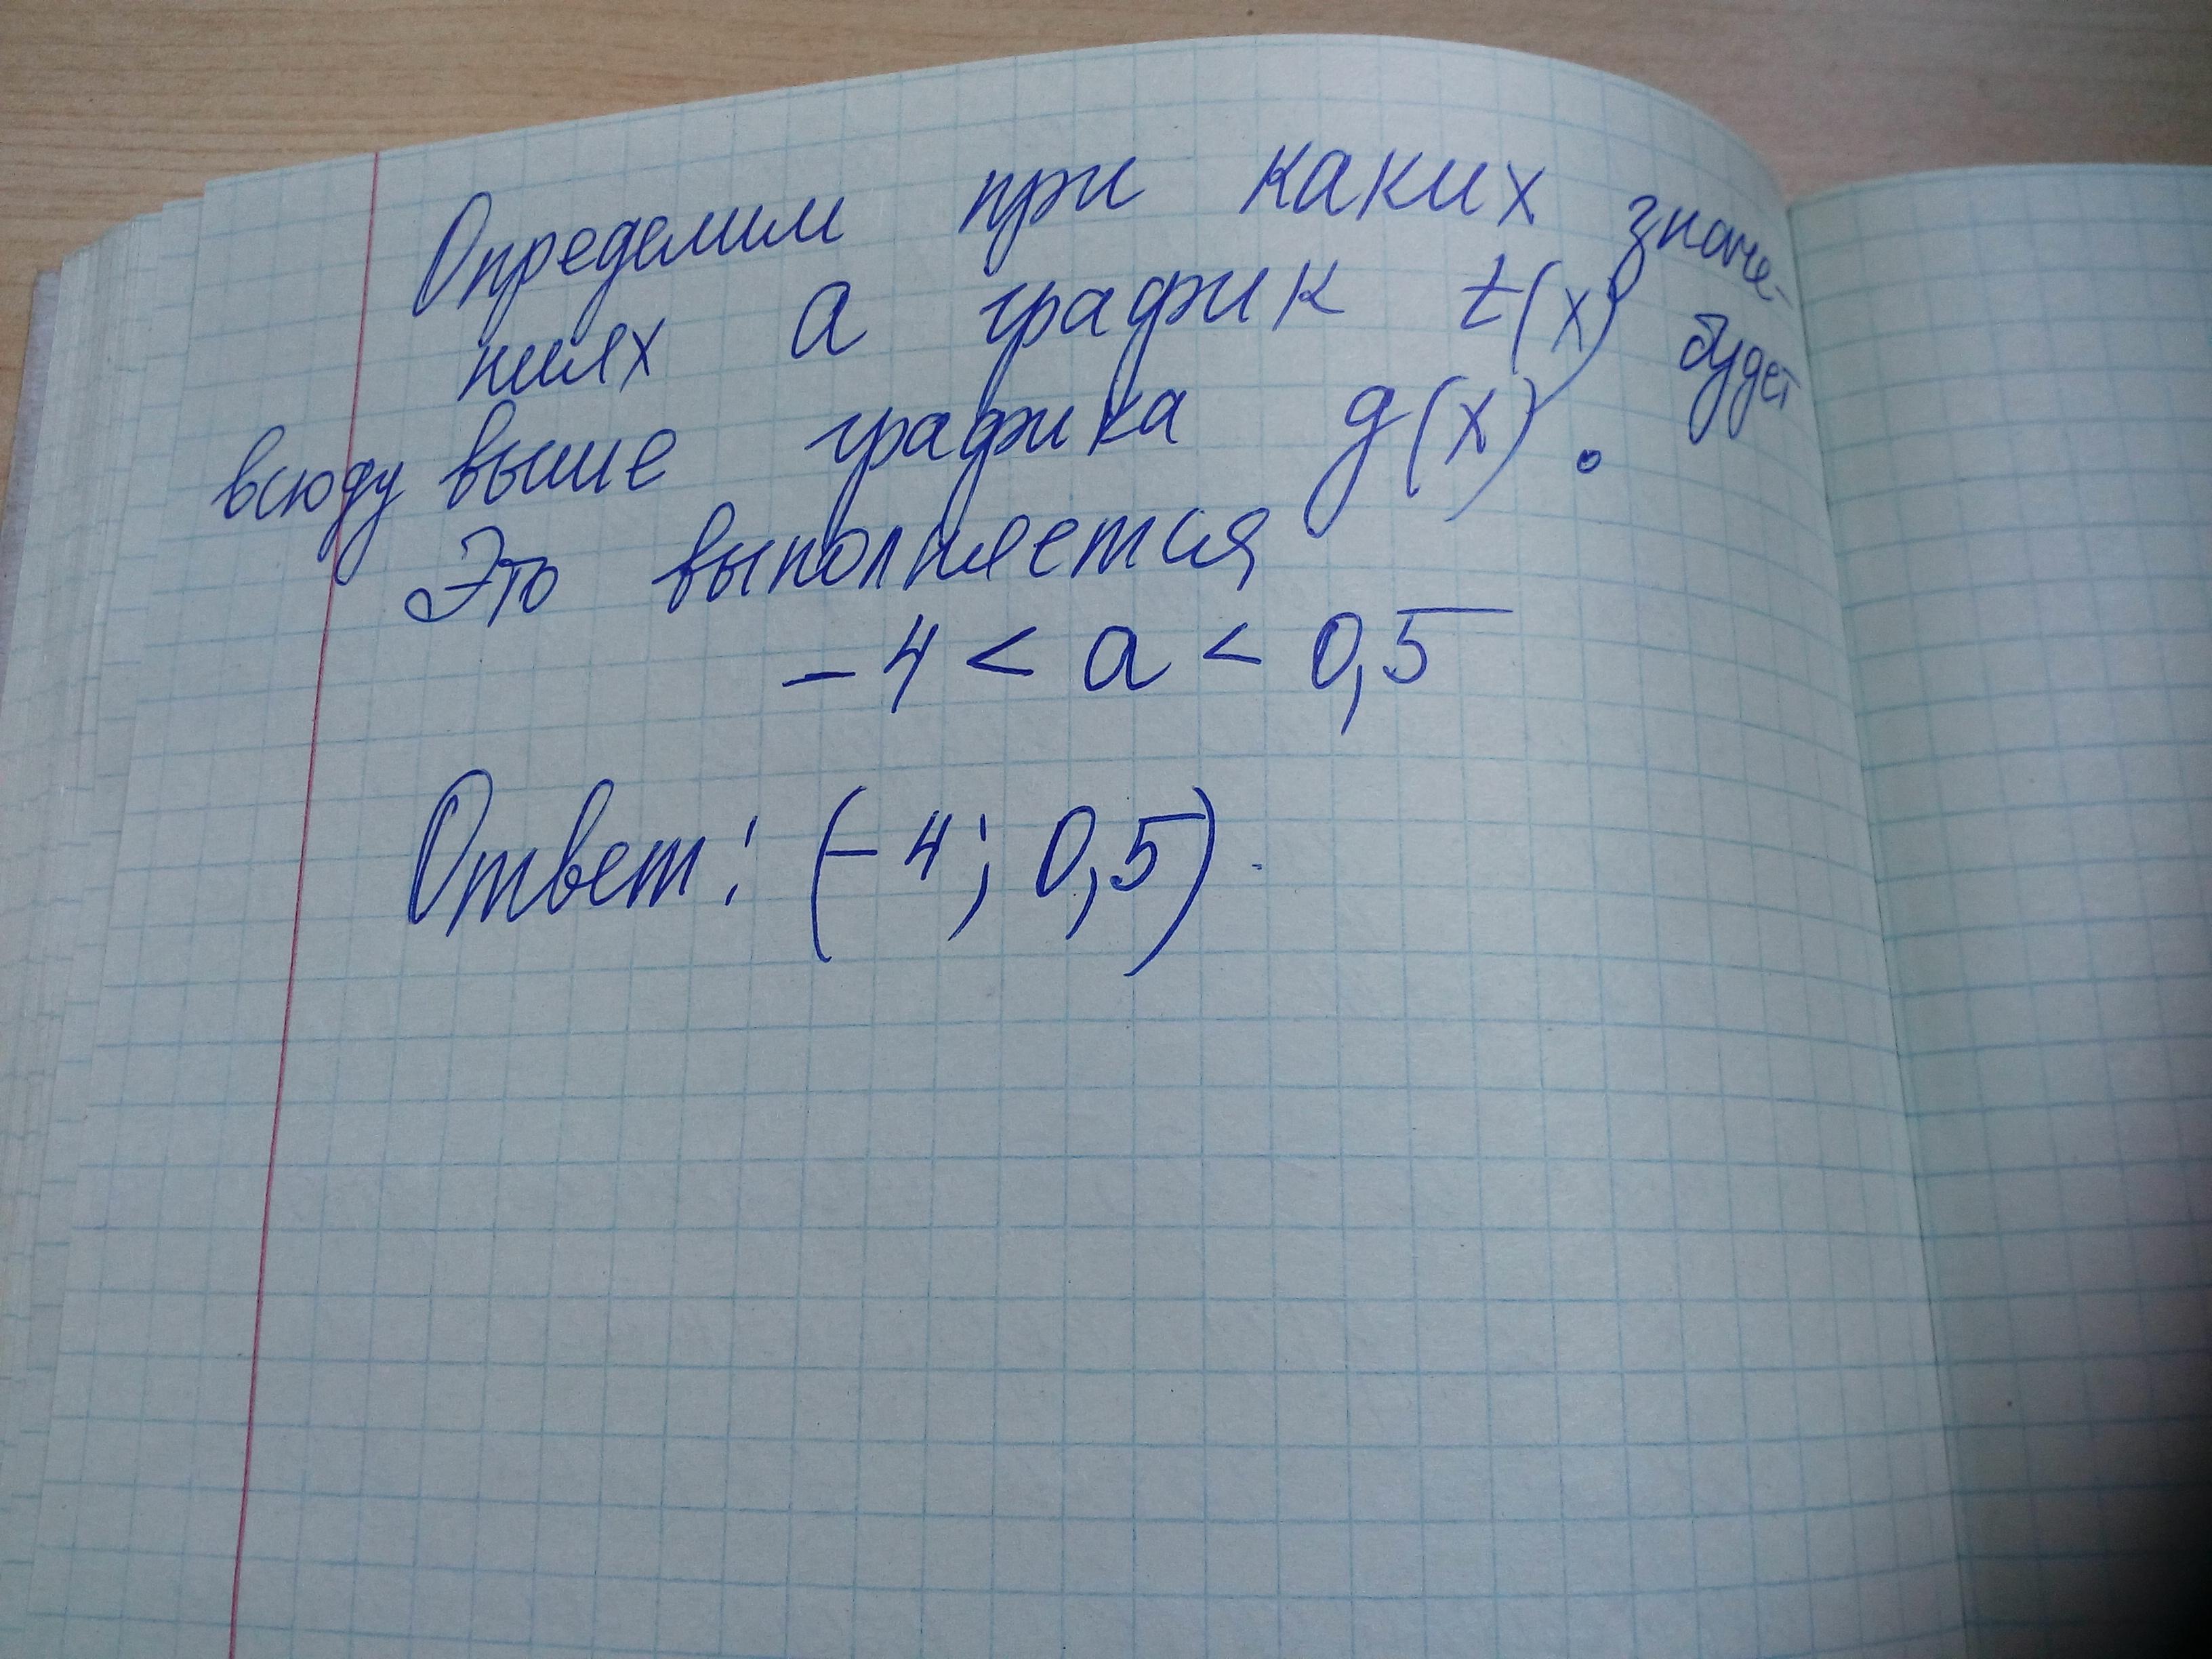 Определим при каких значе-
ниях а график t(x) будет
всюду выше графика g(x).
Это выполняется
-4 < a < 0,5
Ответ: (-4; 0,5).